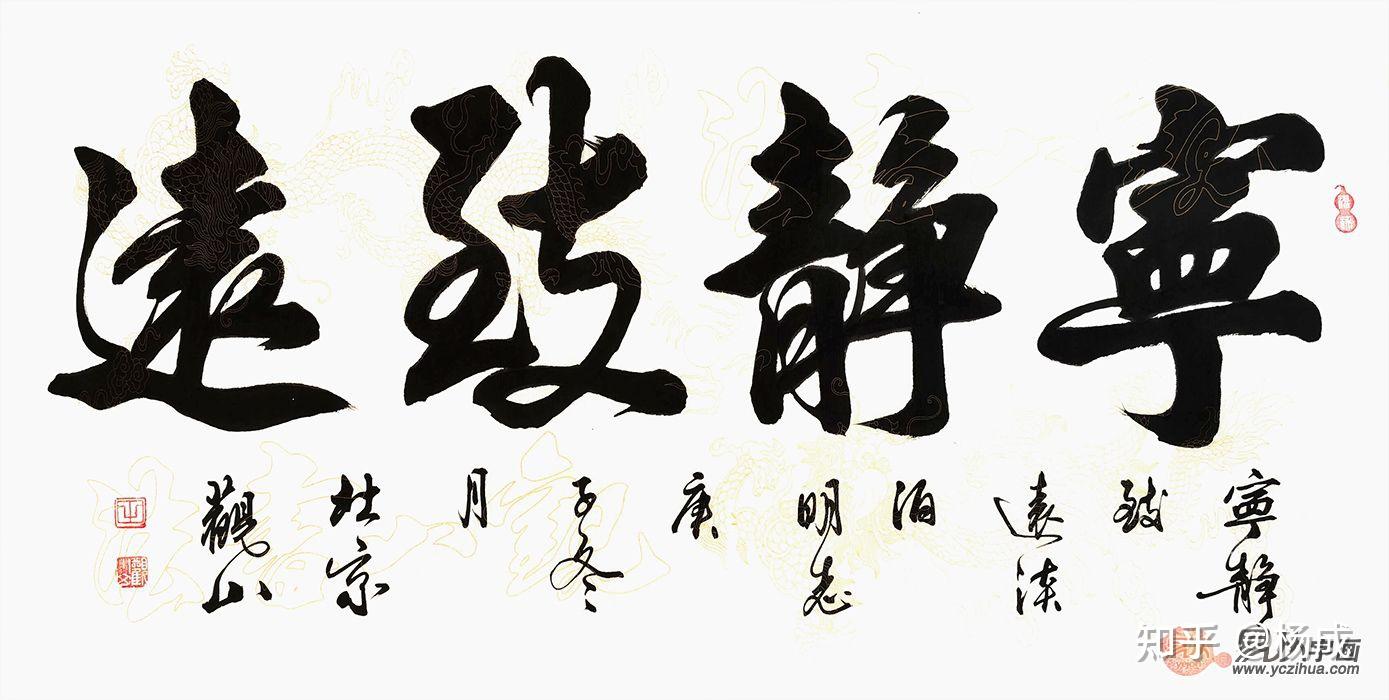 寧靜致遠
寧靜
致
遠淡
泊
明志
庚
子冬
月
於京
觀山
知乎 @杨成
www.yczihua.com